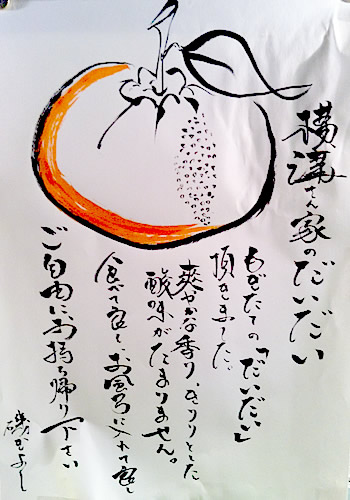 横溝さん家のだいだい
もぎたての「だいだい」
頂きました。
爽やかな香り、きりりとした
酸味がたまりません。
食べて良し、お風呂に入れて良し
ご自由に、お持ち帰り下さい
磯がよし